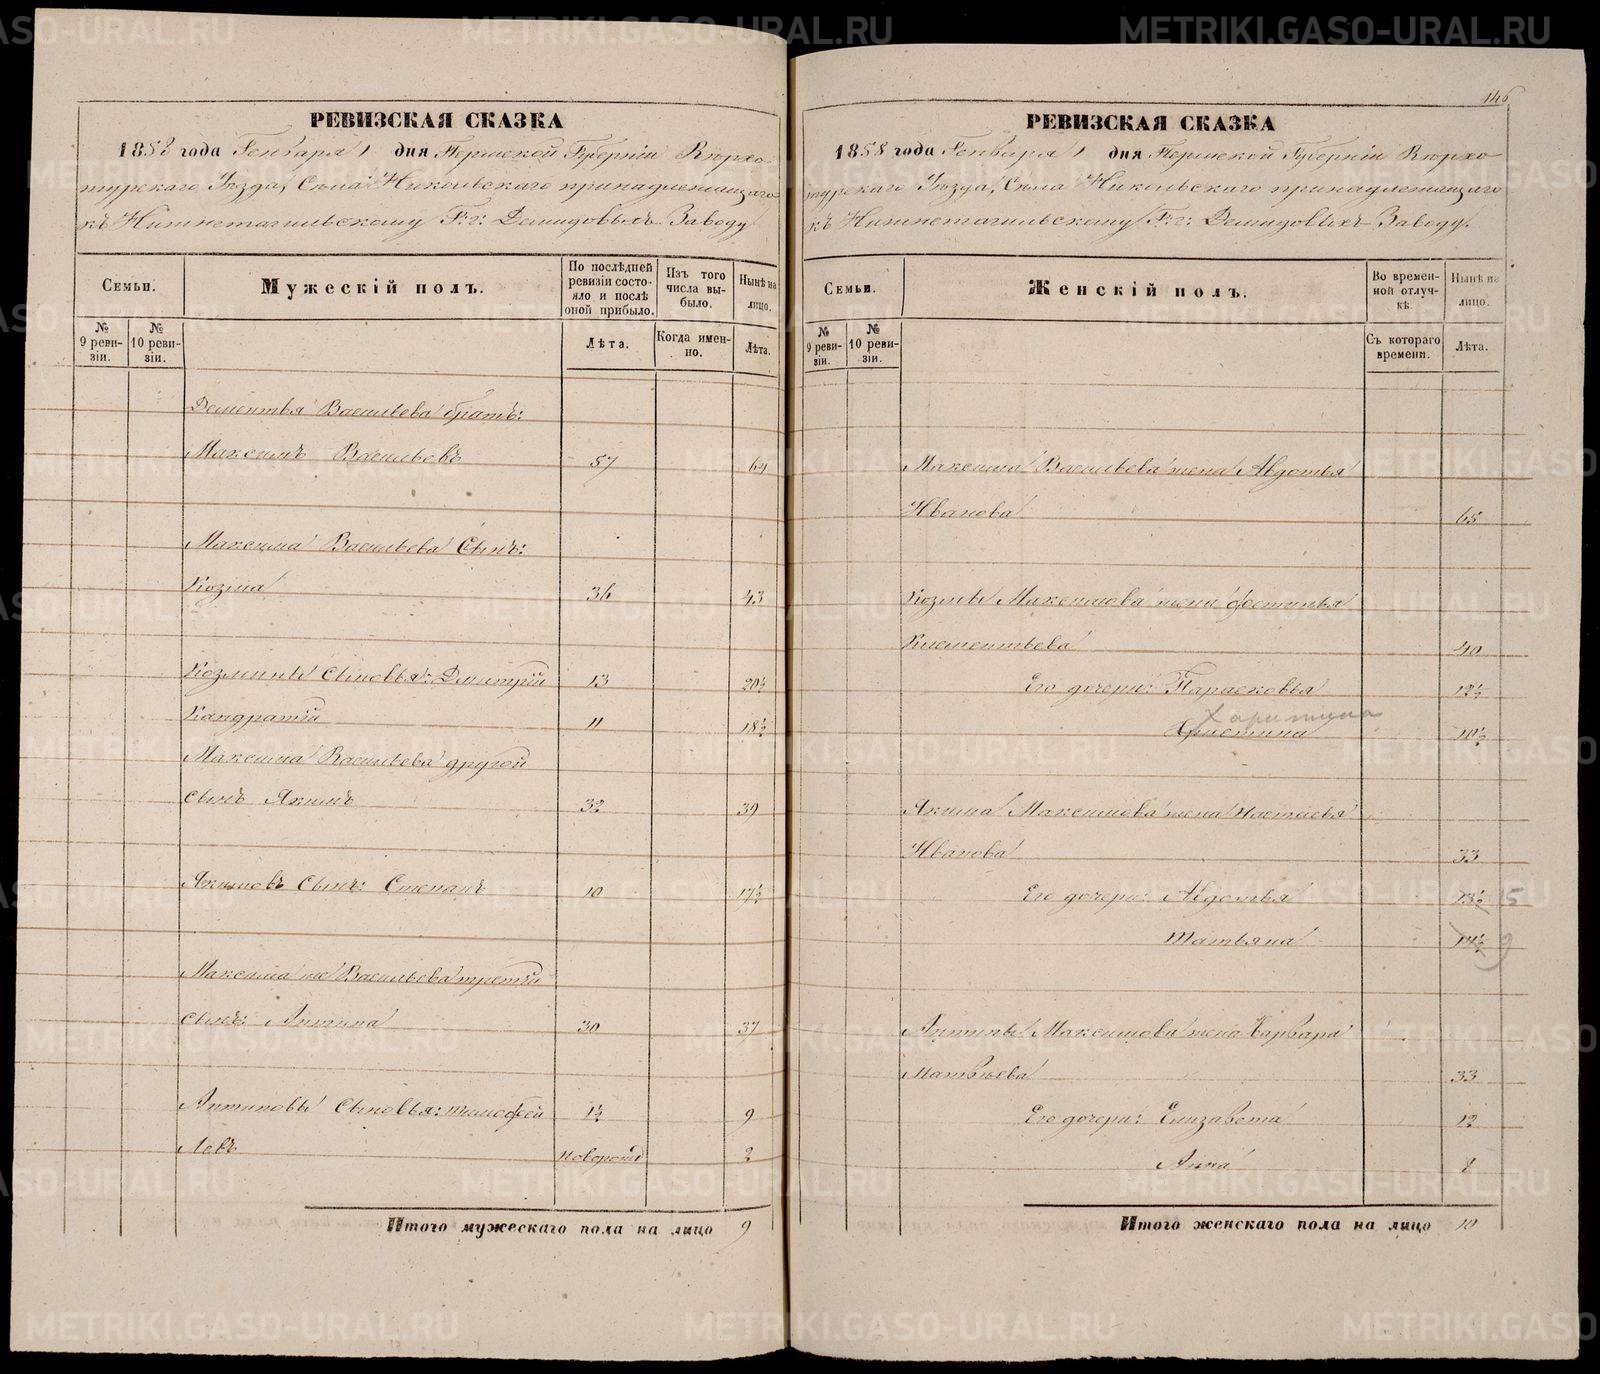 146
РЕВИЗСКАЯ СКАЗКА
1858 года Генваря 1 дня Пермской Губернiи Верхо-
турскаго Уѣзда, Села Николаевскаго принадлежащаго
къ Нижнетагильскому Г.г: Демидовыхъ Заводу
Семьи.
Мужескiй полъ.
По послѣдней ревизiи состояло и послѣ оной прибыло.
Изъ того числа выбыло.
Нынѣ на лицо.
№ 9 ревизiи.
№ 10 ревизiи.
Лѣта.
Когда именно.
Лѣта.
Дементья Васильева братъ:
Максимъ Васильевъ 57 64
Максима Васильева Сынъ:
Козма 36 43
Козмины Сыновья: Дмитрiй 13 20½
Кандратiй 11 18½
Максима Васильева другой
сынъ Якимъ 32 39
Якимовъ Сынъ: Степанъ 10 17½
Максима же Васильева третiй
сынъ: Антипа 30 37
Антиповы Сыновья: Тимофей 1½ 9
Левъ новорожд 2
Итого мужескаго пола на лицо 9
РЕВИЗСКАЯ СКАЗКА
1858 года Генваря 1 дня Пермской Губернiи Верхо-
турскаго Уѣзда, Села Николаевскаго принадлежащаго
къ Нижнетагильскому Г.г: Демидовыхъ Заводу.
Семьи.
Женскiй полъ.
Во временной отлучкѣ.
Нынѣ на лицо.
№ 9 ревизiи.
№ 10 ревизiи.
Съ котораго времени.
Лѣта.
Максима Васильева жена Авдотья
Иванова 65
Козмы Максимова жена Фестинья
Клементьева 40
Его дочери: Парасковья 12½
Харитина
Христина 10½
Якима Максимова жена Настасья
Иванова 33
Его дочери: Авдотья 13½ 15
Татьяна 11½ 9
Антипы Максимова жена Варвара
Матвѣева 33
Его дочери: Елизавета 12
Анна 8
Итого женскаго пола на лицо 10
METRIKI.GASO-URAL.RU